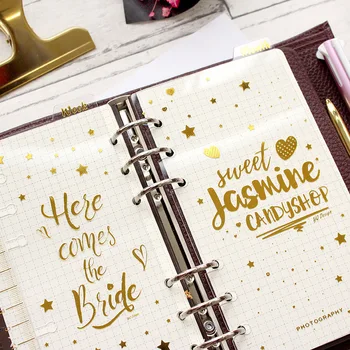 Here
comes
the
Bride
sweet
Jasmine
CANDYSHOP
PHOTOGRAPHY